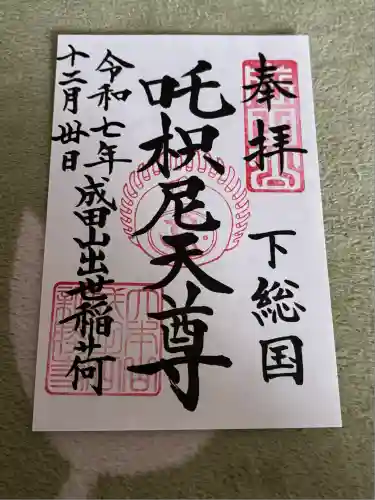 奉拝
下総国
吒枳尼天尊
令和七年
十二月卅日
成田山出世稲荷